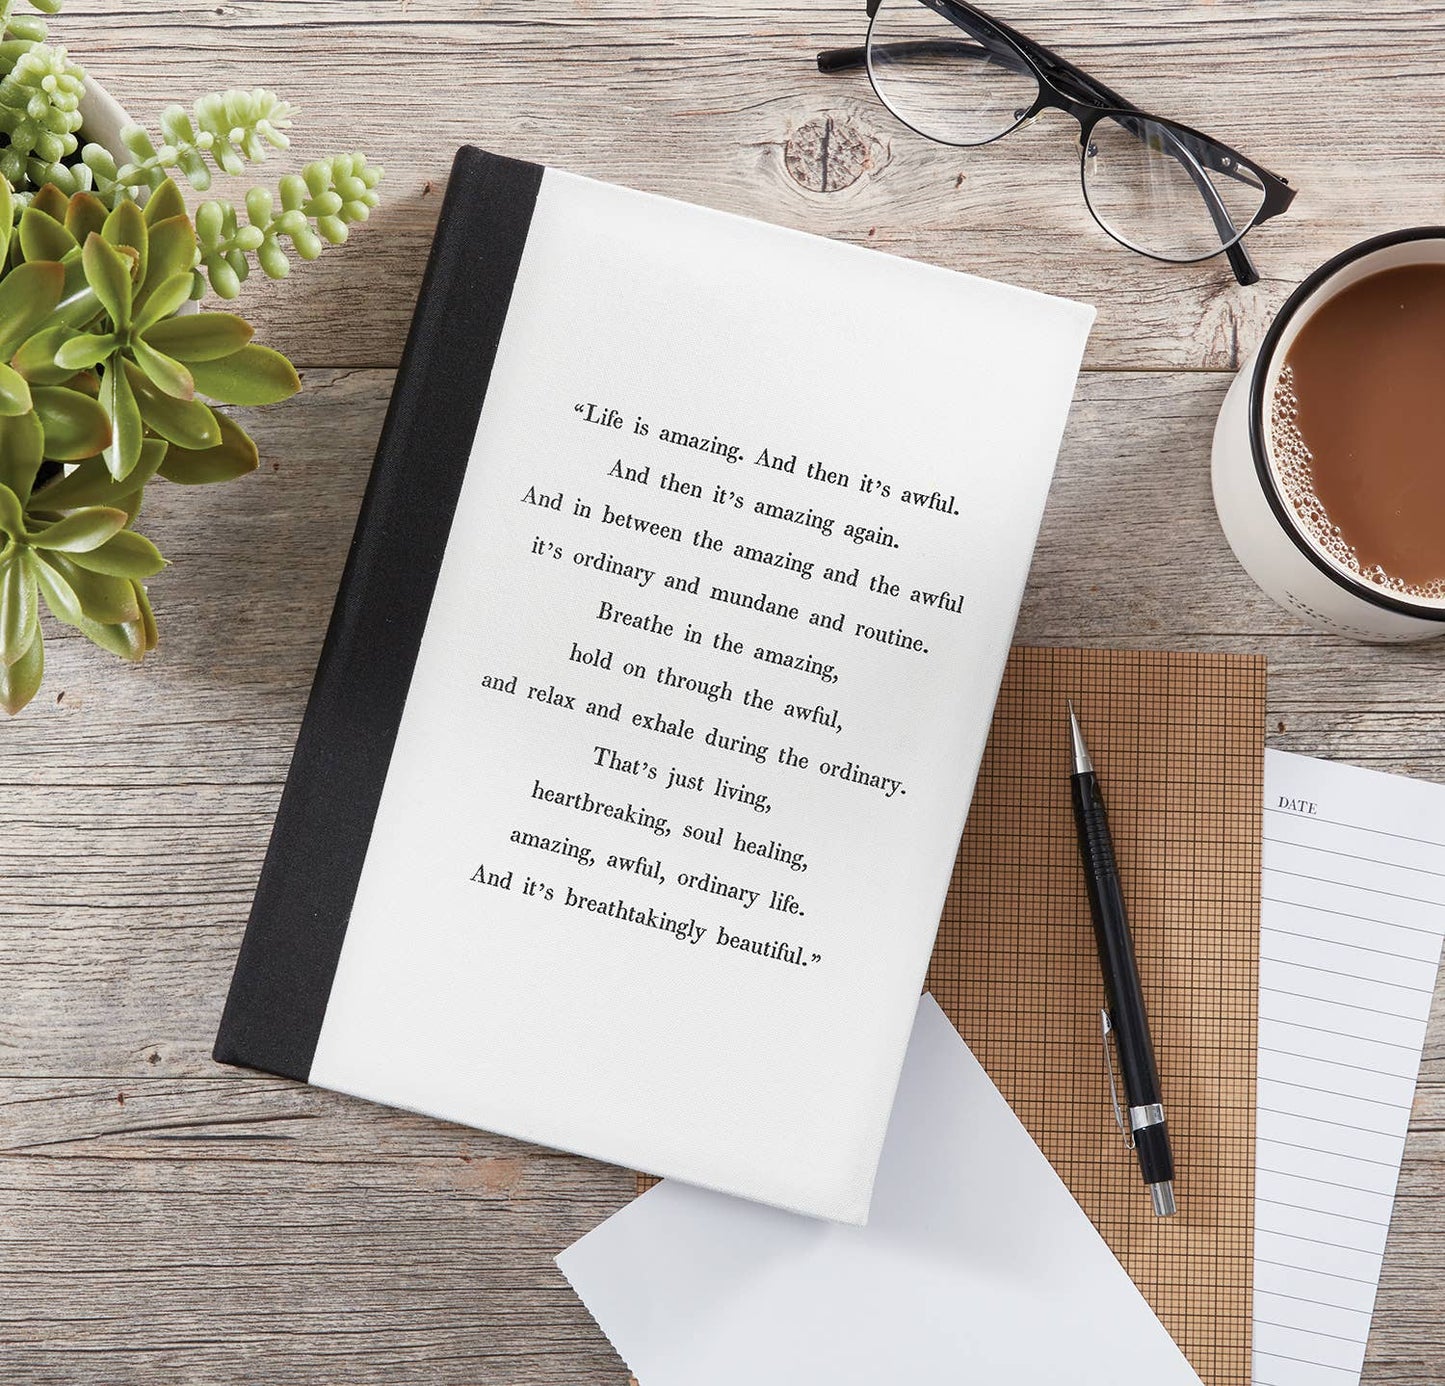 “Life is amazing. And then it’s awful.
And then it’s amazing again.
And in between the amazing and the awful
it’s ordinary and mundane and routine.
Breathe in the amazing,
hold on through the awful,
and relax and exhale during the ordinary.
That’s just living,
heartbreaking, soul healing,
amazing, awful, ordinary life.
And it’s breathtakingly beautiful.”
DATE